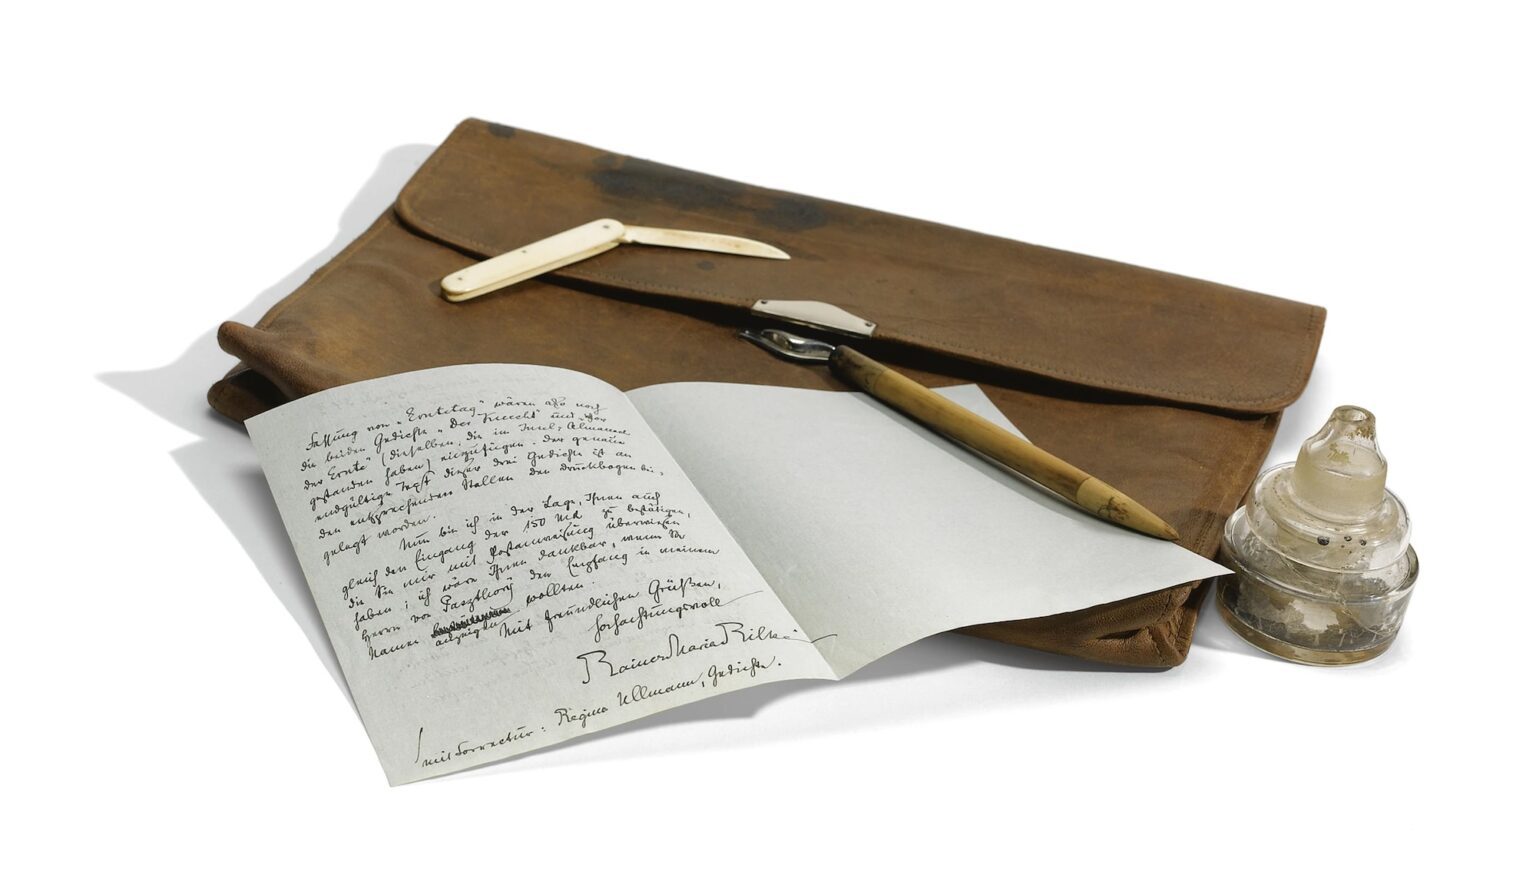 Fassung von „Erntetag" wären also noch
die beiden Gedichte „Der Knecht" und „Vor
der Ernte" (dieselben, die im Insel-Almanach
gestanden haben) einzufügen. Der genaue
endgültige Text dieser drei Gedichte ist an
den entsprechenden Stellen den Druckbogen bei-
gelegt worden.
Nun bin ich in der Lage, Ihnen auch
gleich den Eingang der 150 Mk zu bestätigen,
die Sie mir mit Postanweisung überwiesen
haben; ich wäre Ihnen dankbar, wenn Sie
Herrn von den Empfang in meinem
Namen anzeigen wollten.
Mit freundlichen Grüßen,
hochachtungsvoll
Rainer Maria Rilke
mit Korrectur: Regina Ullmann, Gedichte.